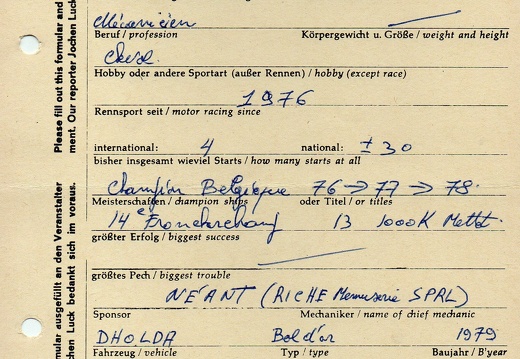 Mécanicien
Beruf / profession Körpergewicht u. Größe / weight and height
Hobby oder andere Sportart (außer Rennen) / hobby (except race)
1976
Rennsport seit / motor racing since
international: 4 national: ± 30
bisher insgesamt wieviel Starts / how many starts at all
Champion Belgique 76 → 77 → 78.
Meisterschaften / champion ships oder Titel / or titles
14e Francorchamp 13 1000K Mettet
größter Erfolg / biggest success
größtes Pech / biggest trouble
NÉANT (RICHE Menuiserie SPRL)
Sponsor Mechaniker / name of chief mechanic
DHOLDA Bol d'or 1979
Fahrzeug / vehicle Typ / type Baujahr / B'year
Please fill out this formular and
ment. Our reporter Jochen Luck
mular ausgefüllt an den Veranstalter
chen Luck bedankt sich im voraus.